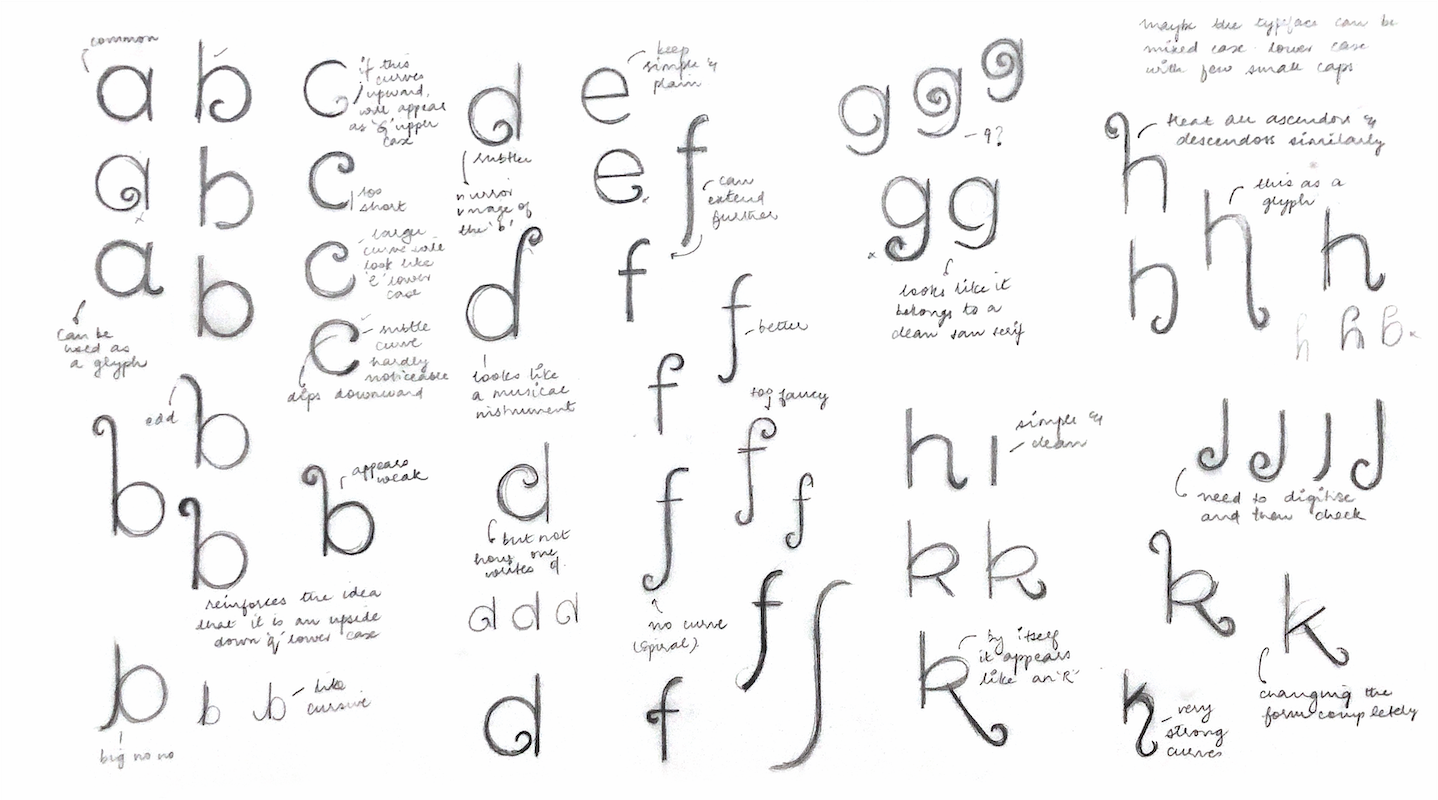 common
a
a
a
can be
used as
a glyph
b
b
b
odd
b
b
b
reinforces the idea
that it is an upside
down 'g' lower case
b
b
b
like
cursive
big no no
c
if this
curves
upward,
will appear
as 'G' upper
case
c
too
short
c
large
curve will
look like
'e' lower
case
c
subtle
curve
hardly
noticeable
dips downward
b
appears
weak
d
subtle
mirror
image of
the 'b'
d
looks like
a musical
instrument
d
but not
how one
writes d.
d d d
d
e
keep
simple &
plain
e
x
f
can
extend
further
f
f
better
f
too fancy
f
f
f
no curve
(spiral).
f
f
f
g g g
- 9?
g g
x
looks like it
belongs to a
clean san serif
maybe the typeface can be
mixed case. lower case
with few small caps
h
treat all ascendors &
descendors similarly
h
this as a
glyph
h
h
h h B x
h i
simple &
clean
J J J J
need to digitise
and then check
k k
k
by itself
it appears
like an 'R'
k
k
changing the
form completely
k
very
strong
curves